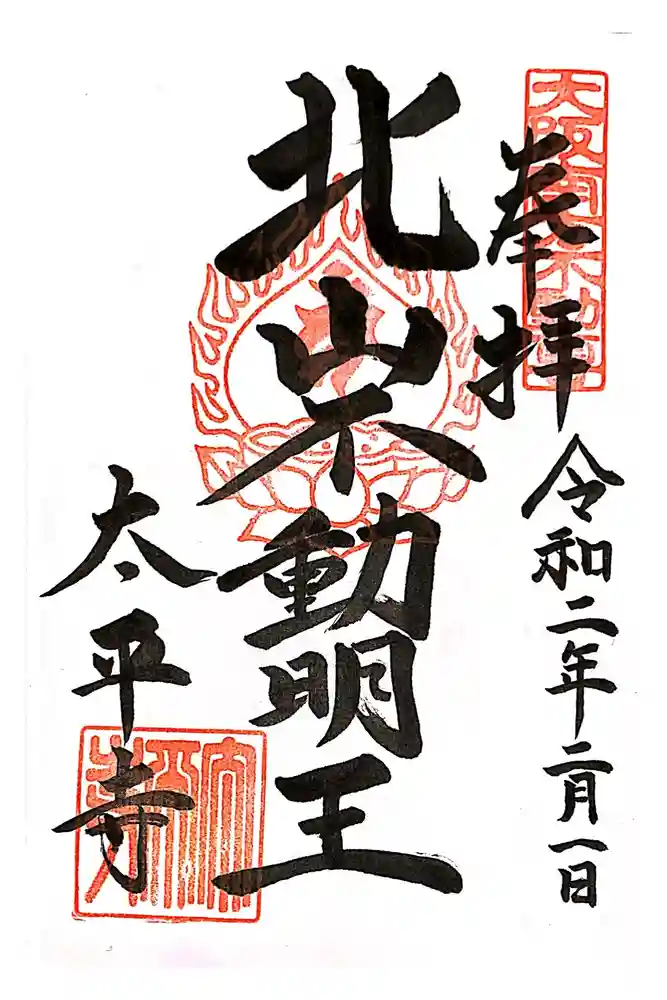 大阪南不動尊
奉拝
令和二年二月一日
北山不動明王
太平寺
太平寺